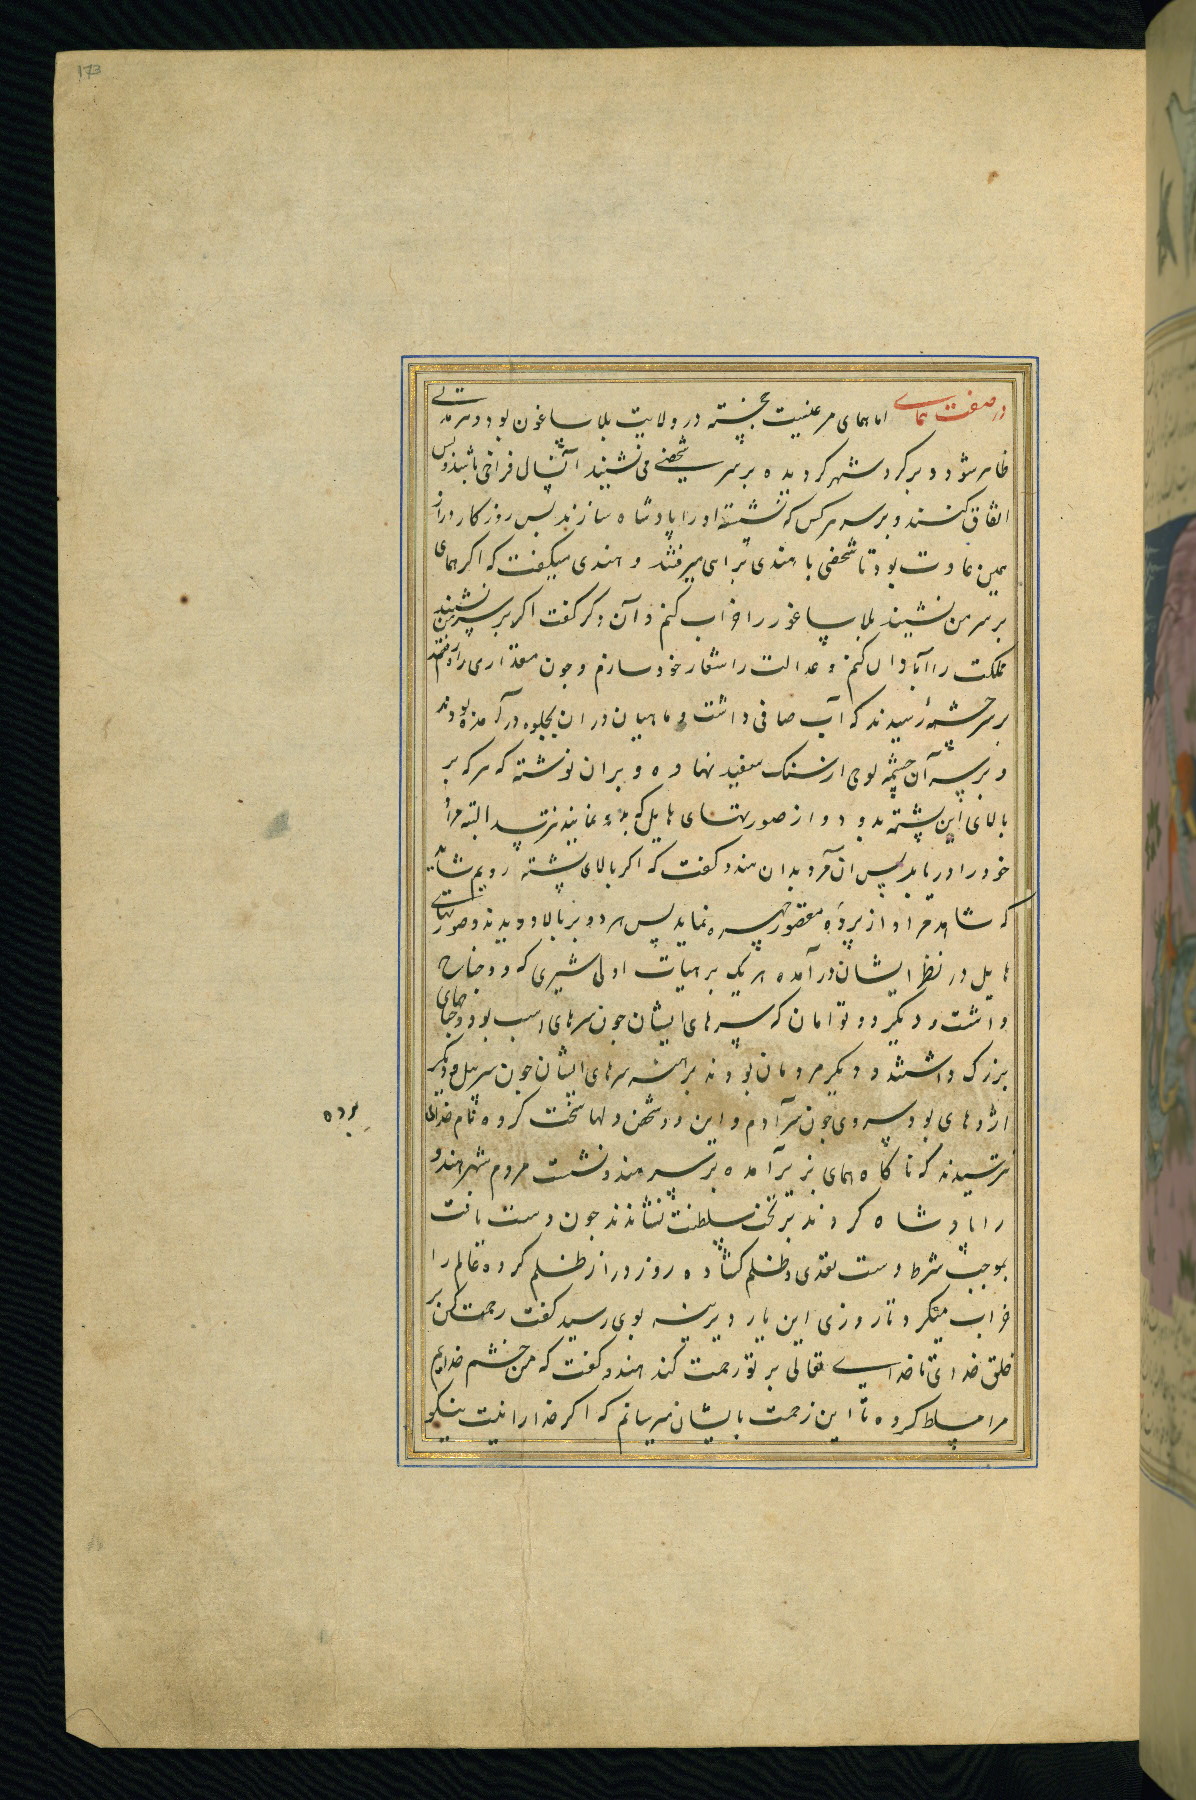 173
در صفت همای اما همای مرغیست خجسته در ولایت بلاساغون بود و هر مدتی
ظاهر شود و بر کرد شهر کردیده بر سر شخصی می نشیند آنسال فراخی باشد و بس
اتفاق کنند و بر سر هر کس که نشسته او را پادشاه سازند پس روزکار دراز
همین عادت بود تا شخصی با هندی براهی میرفتند و هندی میکفت که اکر همای
بر سر من نشیند بلاساغور را خراب کنم و آن دکر کفت اکر بر سر من نشیند
مملکت را آبادان کنم و عدالت را شعار خود سازم و چون مقداری راه رفتند
بر سر چشمهٔ رسیدند که آب صافی داشت و ماهیان در ان بجلوه در آمده بودند
و بر سر آن چشمه لوحی از سنک سفید نهاده و بران نوشته که هر که بر
بالای این پشته بدود و از صورتهای هایل که نماید نترسد البته مراد
خود را دریابد پس ان مرد بدان هندو کفت که اکر بالای پشته رویم شاید
که شاهد مراد از پردهٔ مقصود چهره نماید پس هر دو بر بالا دویدند و صورتهای
هایل در نظر ایشان در آمده هر یک بر هیات اولی شیری که دو جناح
داشت و دیکر دو توامان که سرهای ایشان چون سرهای اسب بود و جناحهای
بزرک داشتند و دیکر مردمان بودند برهنه سرهای ایشان چون سر پیل و دیکر
اژدهای بود سر وی چون سر آدم و این دو شخص دلها سخت کرده بنام خدای
بوده
نترسیدند که ناکاه همای بزیر آمده بر سر هندو نشست مردم شهر هندو
را پادشاه کردند بر تخت سلطنت نشاندند چون دست یافت
بموجب شرط دست تعدی و ظلم کشاده روز دراز ظلم کرده عالم را
خراب میکرد تا روزی این یار دیرینه بوی رسید کفت رحمت کن بر
خلق خدای تا خدای تعالی بر تو رحمت کند هندو کفت که من خشم خدایم
مرا مسلط کرده تا این زحمت بایشان میرسانم که اکر خدا را نیت نیکو